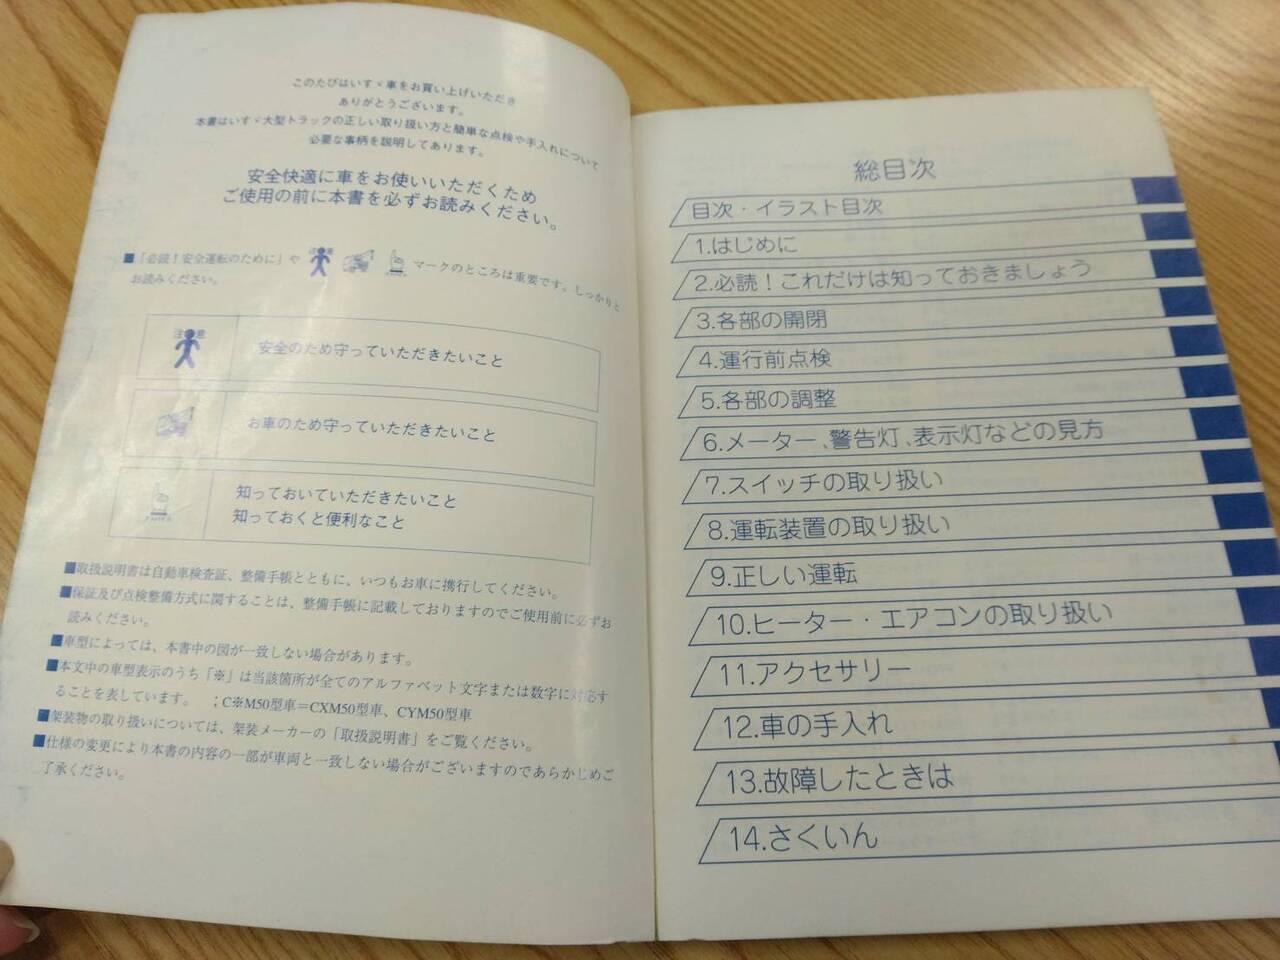 このたびはいすゞ車をお買い上げいただき
ありがとうございます。
本書はいすゞ大型トラックの正しい取り扱い方と簡単な点検や手入れについて
必要な事柄を説明してあります。
安全快適に車をお使いいただくため
ご使用の前に本書を必ずお読みください。
■「必読！安全運転のために」や 注意 マークのところは重要です。しっかりと
お読みください。
注意
安全のため守っていただきたいこと
お車のため守っていただきたいこと
知っておいていただきたいこと
知っておくと便利なこと
■取扱説明書は自動車検査証、整備手帳とともに、いつもお車に携行してください。
■保証及び点検整備方式に関することは、整備手帳に記載しておりますのでご使用前に必ずお
読みください。
■車型によっては、本書中の図が一致しない場合があります。
■本文中の車型表示のうち「※」は当該箇所が全てのアルファベット文字または数字に対応す
ることを表しています。 ；C※M50型車＝CXM50型車、CYM50型車
■架装物の取り扱いについては、架装メーカーの「取扱説明書」をご覧ください。
■仕様の変更により本書の内容の一部が車両と一致しない場合がございますのであらかじめご
了承ください。
総目次
目次・イラスト目次
1.はじめに
2.必読！これだけは知っておきましょう
3.各部の開閉
4.運行前点検
5.各部の調整
6.メーター、警告灯、表示灯などの見方
7.スイッチの取り扱い
8.運転装置の取り扱い
9.正しい運転
10.ヒーター・エアコンの取り扱い
11.アクセサリー
12.車の手入れ
13.故障したときは
14.さくいん